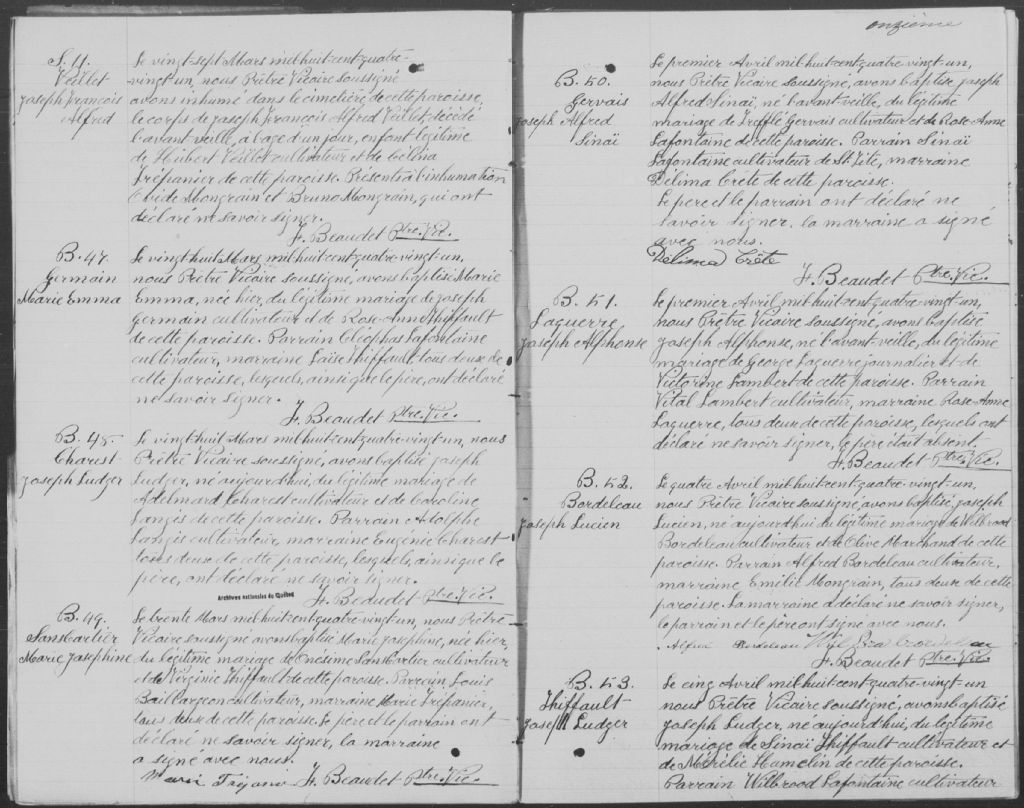 S. 11.
Veillet
Joseph François
Alfred
Le vingt-sept Mars mil-huit-cent-quatre-
vingt-un, nous Prêtre Vicaire soussigné
avons inhumé dans le cimetière de cette paroisse,
le corps de Joseph François Alfred Veillet décédé
l'avant-veille, à l'age d'un jour, enfant légitime
de Hubert Veillet cultivateur et de Célina
Trépanier de cette paroisse. Présents à l'inhumation
Mongrain et Bruno Mongrain, qui ont
déclaré ne savoir signer.
F. Beaudet Ptre. Vic.
B. 47.
Germain
Marie Emma
Le vingt-huit Mars mil-huit-cent-quatre-vingt-un,
nous Prêtre Vicaire soussigné, avons baptisé Marie
Emma, née hier, du légitime mariage de Joseph
Germain cultivateur et de Rose-Anne Thiffault
de cette paroisse. Parrain Cléophas Lafontaine
cultivateur, marraine Thiffault tous deux de
cette paroisse, lesquels, ainsi que le père, ont déclaré
ne savoir signer.
F. Beaudet Ptre. Vic.
B. 48.
Charest
Joseph Ludger
Le vingt-huit Mars mil-huit-cent-quatre-vingt-un, nous
Prêtre Vicaire soussigné, avons baptisé Joseph
Ludger, né aujourd'hui, du légitime mariage de
Adelmard Charest cultivateur et de Caroline
Langis de cette paroisse. Parrain Adolphe
Langis cultivateur, marraine Eugénie Charest
tous deux de cette paroisse, lesquels, ainsi que le
père, ont déclaré ne savoir signer.
Archives nationales du Québec
F. Beaudet Ptre. Vic.
B. 49.
Sanscartier
Marie Josephine
Le trente Mars mil-huit-cent-quatre-vingt-un, nous Prêtre
Vicaire soussigné avons baptisé Marie Josephine, née hier,
du légitime mariage de Onésime Sanscartier cultivateur
et de Virginie Thiffault de cette paroisse. Parrain Louis
Baillargeon cultivateur, marraine Marie Trépanier,
tous deux de cette paroisse. Le père et le parrain ont
déclaré ne savoir signer, la marraine
a signé avec nous.
F. Beaudet Ptre. Vic.
onzième
B. 50.
Gervais
Joseph Alfred
Sinaï
Le premier Avril mil-huit-cent-quatre-vingt-un,
nous Prêtre Vicaire soussigné, avons baptisé Joseph
Alfred Sinaï, né l'avant-veille, du légitime
mariage de Trefflé Gervais cultivateur et de Rose-Anne
Lafontaine de cette paroisse. Parrain Sinaï
Lafontaine cultivateur de St. Tite, marraine
Délima Crête de cette paroisse.
Le père et le parrain ont déclaré ne
savoir signer. la marraine a signé
avec nous.
Délima Crête
F. Beaudet Ptre. Vic.
B. 51.
Laguerre
Joseph Alphonse
Le premier Avril mil-huit-cent-quatre-vingt-un,
nous Prêtre Vicaire soussigné, avons baptisé
Joseph Alphonse, né l'avant-veille, du légitime
mariage de George Laguerre journalier et de
Victorine Lambert de cette paroisse. Parrain
Vital Lambert cultivateur, marraine Rose-Anne
Laguerre, tous deux de cette paroisse, lesquels ont
déclaré ne savoir signer, le père était absent.
F. Beaudet Ptre. Vic.
B. 52.
Bordeleau
Joseph Lucien
Le quatre Avril mil-huit-cent-quatre-vingt-un,
nous Prêtre Vicaire soussigné, avons baptisé, Joseph
Lucien, né aujourd'hui du légitime mariage de Wilbrood
Bordeleau cultivateur et de Olive Marchand de cette
paroisse. Parrain Alfred Bordeleau cultivateur,
marraine Emilie Mongrain, tous deux de cette
paroisse. La marraine a déclaré ne savoir signer,
le parrain et le père ont signé avec nous.
Alfred Bordeleau
F. Beaudet Ptre. Vic.
B. 53.
Thiffault
Joseph Ludger
Le cinq Avril mil-huit-cent-quatre-vingt-un
nous Prêtre Vicaire soussigné, avons baptisé
Joseph Ludger, né aujourd'hui, du légitime
mariage de Sinaï Thiffault cultivateur et
de Hamelin de cette paroisse.
Parrain Wilbrood Lafontaine cultivateur